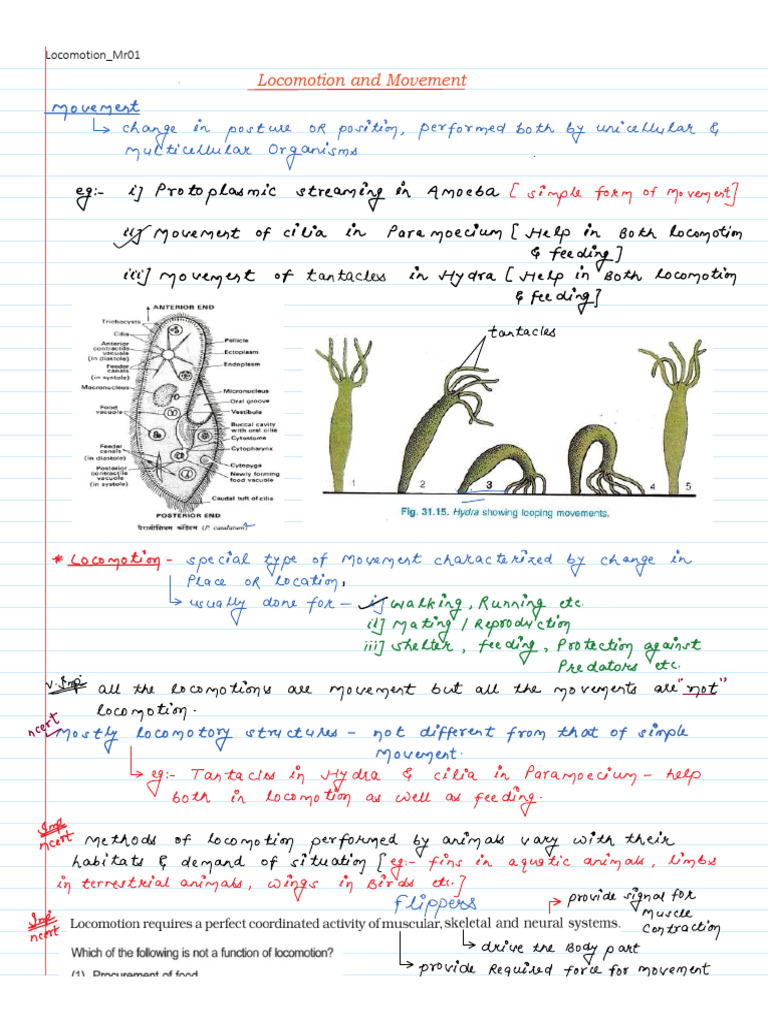 Locomotion_Mr01
Locomotion and Movement
Movement
↳ change in posture OR position, performed both by unicellular &
multicellular Organisms
eg:- i] Protoplasmic streaming in Amoeba [simple form of movement]
ii] Movement of cilia in Paramoecium [Help in Both locomotion
& feeding]
iii] movement of tantacles in Hydra [Help in Both locomotion
& feeding]
ANTERIOR END
Trichocysts
Cilia
Anterior
contractile
vacuole
(in diastole)
Feeder
canals
(in systole)
Macronucleus
Food
vacuole
Feeder
canals
(in diastole)
Posterior
contractile
vacuole
(in systole)
Pellicle
Ectoplasm
Endoplasm
Micronucleus
Oral groove
Vestibule
Buccal cavity
with oral cilia
Cytostome
Cytopharynx
Cytopyge
Newly forming
food vacuole
Caudal tuft of cilia
POSTERIOR END
(P. caudatum)
tantacles
1 2 3 4 5
Fig. 31.15. Hydra showing looping movements.
* Locomotion - special type of movement characterized by change in
Place OR location,
↳ usually done for - i] walking, Running etc.
ii] Mating / Reproduction
iii] shelter, feeding, Protection against
Predators etc.
V. Imp all the locomotions are movement but all the movements are "not"
locomotion.
ncert Mostly locomotory structures - not different from that of simple
movement.
↳ eg:- Tantacls in Hydra & cilia in Paramoecium - help
both in locomotion as well as feeding.
Imp
ncert Methods of locomotion performed by animals vary with their
habitats & demand of situation [eg:- fins in aquatic animals, limbs
in terrestrial animals, wings in Birds etc.]
flippers
→ provide signal for
Muscle
Contraction
Imp
ncert Locomotion requires a perfect coordinated activity of muscular, skeletal and neural systems.
↳ drive the Body part
↳ provide Required force for movement
Which of the following is not a function of locomotion?
(1) Procurement of food